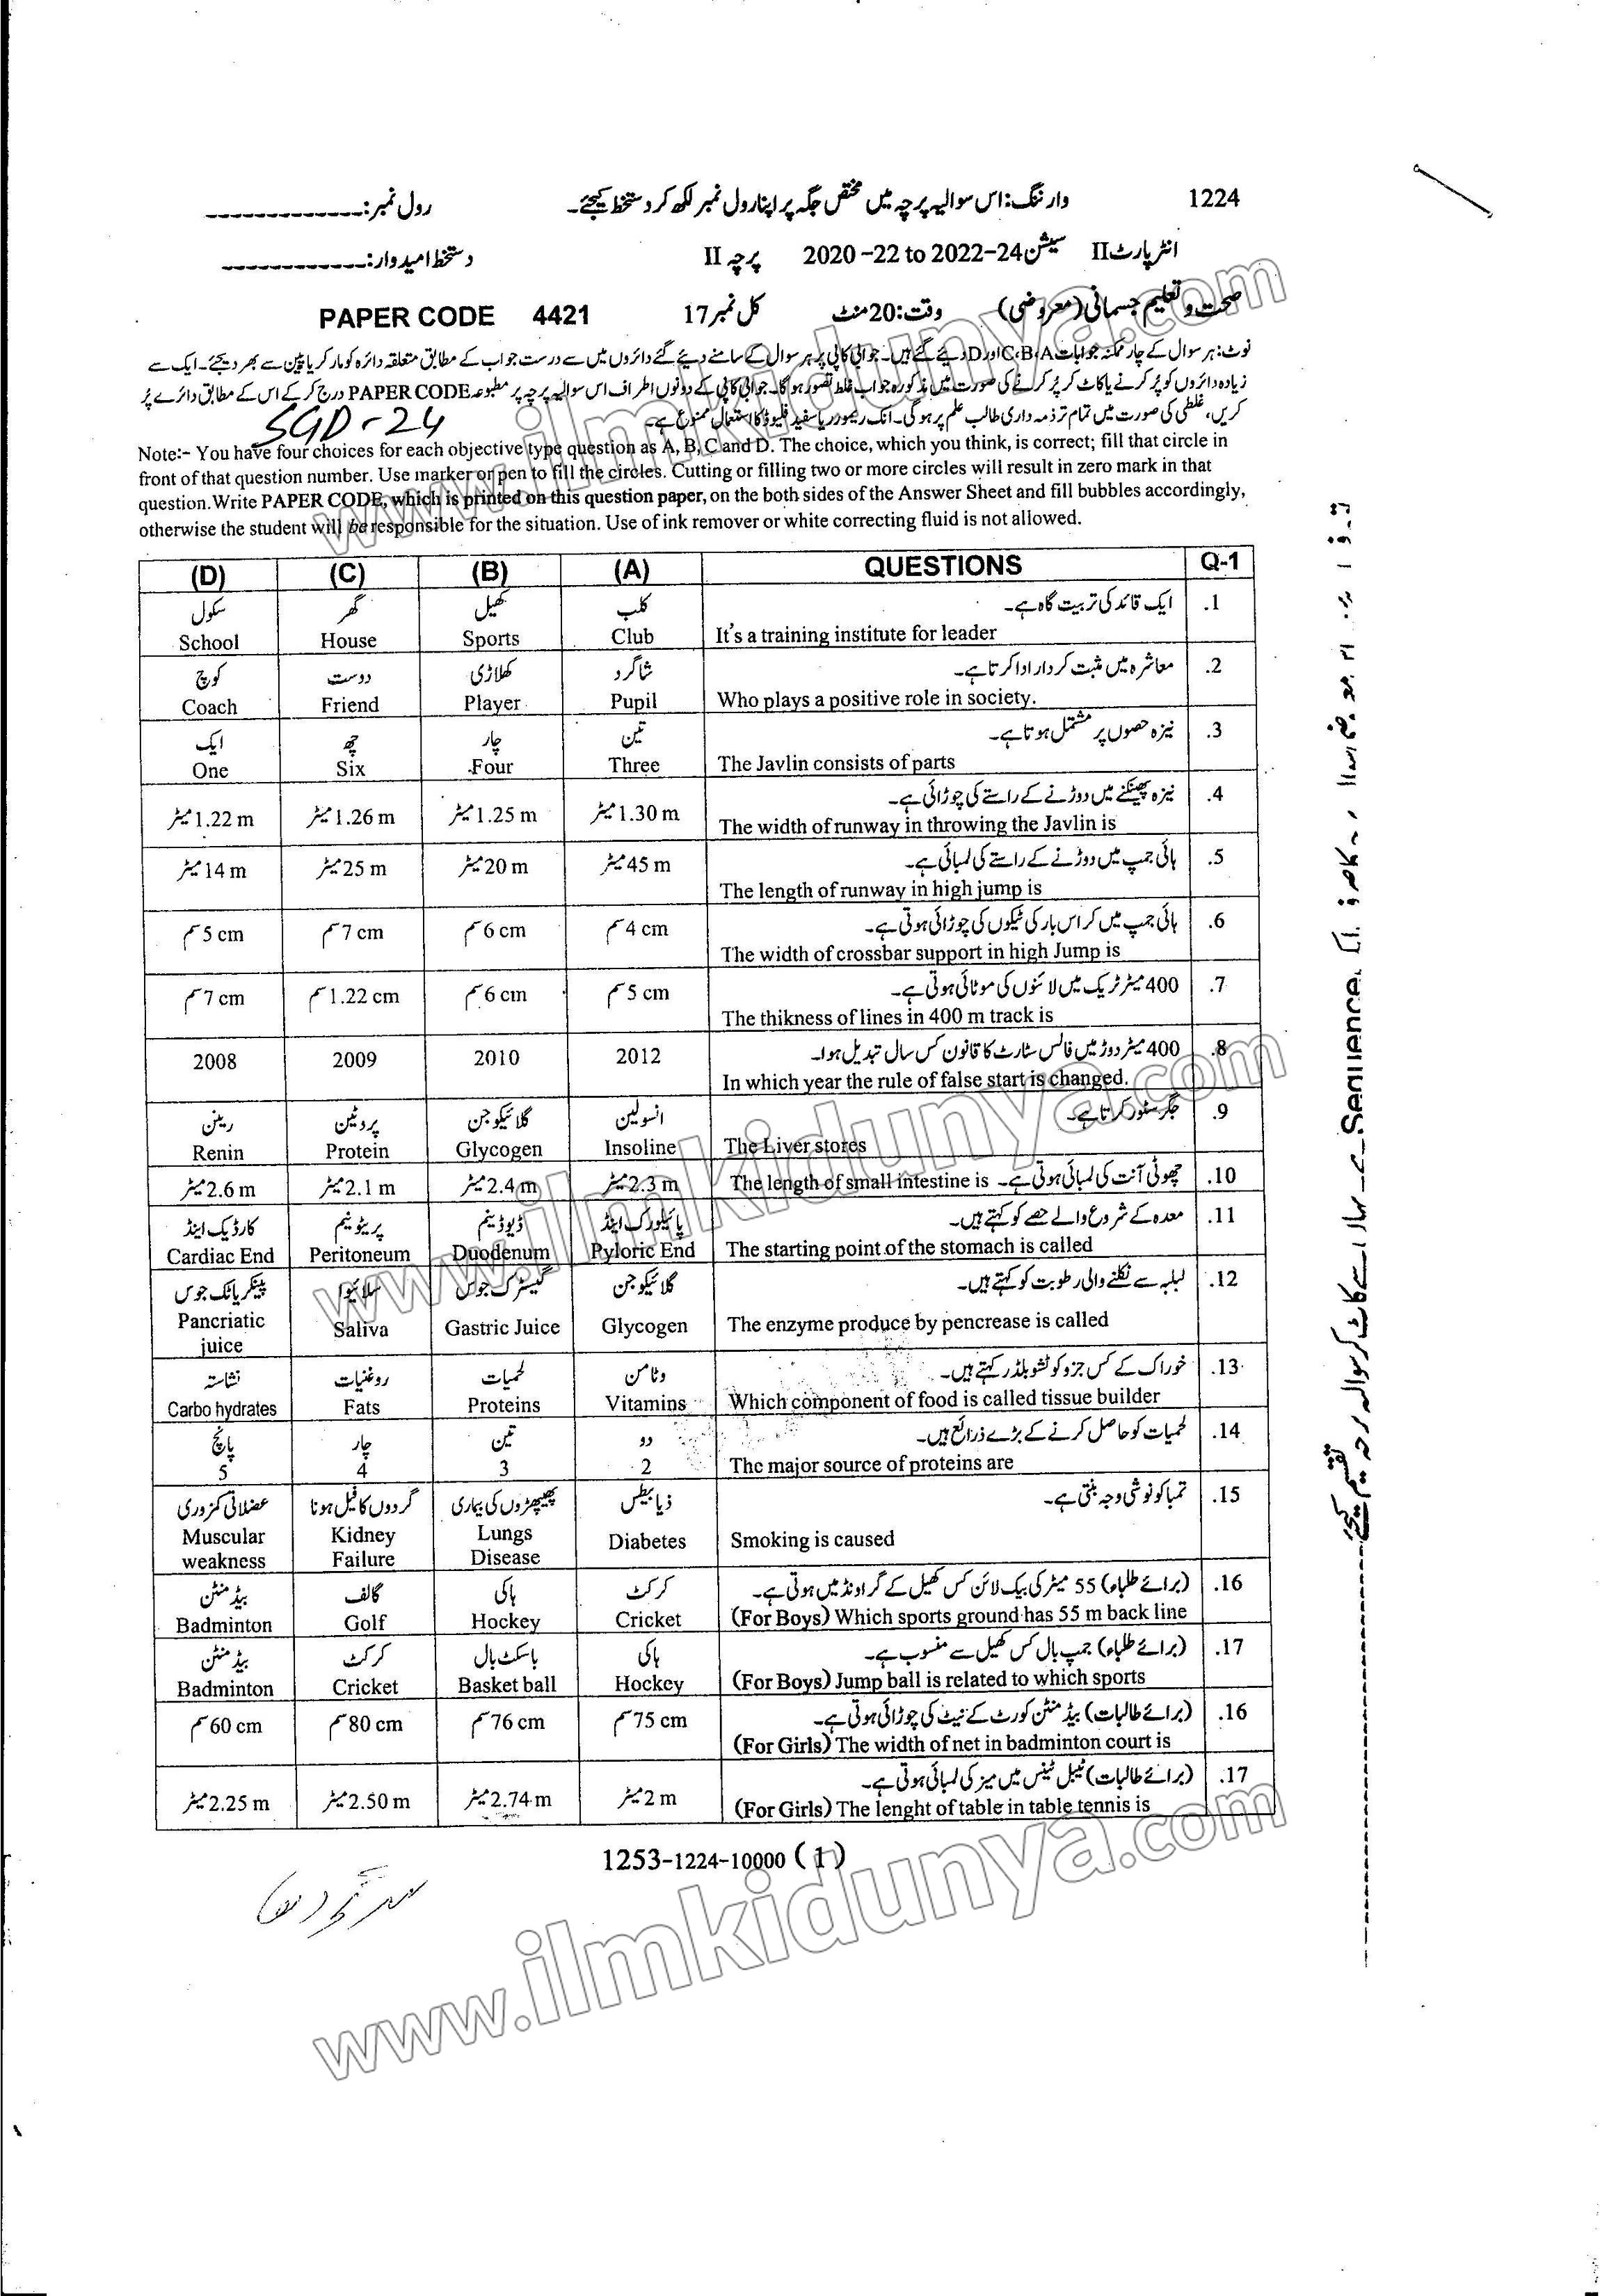 1224 وارننگ: اس سوالیہ پرچہ میں مختص جگہ پر اپنا رول نمبر لکھ کر دستخط کیجئے۔ رول نمبر: -------------
انٹر پارٹ II سیشن 2020-22 to 2022-24 پرچہ II دستخط امیدوار: -------------
صحت و تعلیم جسمانی (معروضی) وقت: 20 منٹ کل نمبر 17 PAPER CODE 4421
نوٹ: ہر سوال کے چار ممکنہ جوابات C، B، A اور D دیئے گئے ہیں۔ جوابی کاپی پر ہر سوال کے سامنے دیئے گئے دائروں میں سے درست جواب کے مطابق متعلقہ دائرہ کو مارکر یا پین سے بھر دیجئے۔ ایک سے
زیادہ دائروں کو پُر کرنے یا کاٹ کر پُر کرنے کی صورت میں مذکورہ جواب غلط تصور ہوگا۔ جوابی کاپی کے دونوں اطراف اس سوالیہ پرچہ پر مطبوعہ PAPER CODE درج کر کے اس کے مطابق دائرے پُر
کریں، غلطی کی صورت میں تمام تر ذمہ داری طالب علم پر ہوگی۔ انک ریموور یا سفید فلیوڈ کا استعمال ممنوع ہے۔
SGD-24
Note:- You have four choices for each objective type question as A, B, C and D. The choice, which you think, is correct; fill that circle in
front of that question number. Use marker or pen to fill the circles. Cutting or filling two or more circles will result in zero mark in that
question.Write PAPER CODE, which is printed on this question paper, on the both sides of the Answer Sheet and fill bubbles accordingly,
otherwise the student will be responsible for the situation. Use of ink remover or white correcting fluid is not allowed.
(D) (C) (B) (A) QUESTIONS Q-1
سکول گھر کھیل کلب ایک قائد کی تربیت گاہ ہے۔ .1
School House Sports Club It's a training institute for leader
کوچ دوست کھلاڑی شاگرد معاشرہ میں مثبت کردار ادا کرتا ہے۔ .2
Coach Friend Player Pupil Who plays a positive role in society.
ایک چھ چار تین نیزہ حصوں پر مشتمل ہوتا ہے۔ .3
One Six Four Three The Javlin consists of parts
نیزہ پھینکنے میں دوڑنے کے راستے کی چوڑائی ہے۔ .4
1.22 m میٹر 1.26 m میٹر 1.25 m میٹر 1.30 m میٹر The width of runway in throwing the Javlin is
ہائی جمپ میں دوڑنے کے راستے کی لمبائی ہے۔ .5
14 m میٹر 25 m میٹر 20 m میٹر 45 m میٹر The length of runway in high jump is
ہائی جمپ میں کراس بار کی ٹیکوں کی چوڑائی ہوتی ہے۔ .6
5 cm سم 7 cm سم 6 cm سم 4 cm سم The width of crossbar support in high Jump is
400 میٹر ٹریک میں لائنوں کی موٹائی ہوتی ہے۔ .7
7 cm سم 1.22 cm سم 6 cm سم 5 cm سم The thikness of lines in 400 m track is
400 میٹر دوڑ میں فالس سٹارٹ کا قانون کس سال تبدیل ہوا۔ .8
2008 2009 2010 2012 In which year the rule of false start is changed.
رینن پروٹین گلائیکوجن انسولین جگر سٹور کرتا ہے۔ .9
Renin Protein Glycogen Insoline The Liver stores
2.6 m میٹر 2.1 m میٹر 2.4 m میٹر 2.3 m میٹر The length of small intestine is چھوٹی آنت کی لمبائی ہوتی ہے۔ .10
کارڈیک اینڈ پریٹونیم ڈیوڈینم پائیلورک اینڈ معدہ کے شروع والے حصے کو کہتے ہیں۔ .11
Cardiac End Peritoneum Duodenum Pyloric End The starting point of the stomach is called
پینکریاٹک جوس سلائیوا گیسٹرک جوس گلائیکوجن لبلبہ سے نکلنے والی رطوبت کو کہتے ہیں۔ .12
Pancriatic juice Saliva Gastric Juice Glycogen The enzyme produce by pencrease is called
نشاستہ روغنیات لحمیات وٹامن خوراک کے کس جزو کو ٹشو بلڈر کہتے ہیں۔ .13
Carbo hydrates Fats Proteins Vitamins Which component of food is called tissue builder
پانچ چار تین دو لحمیات کو حاصل کرنے کے بڑے ذرائع ہیں۔ .14
5 4 3 2 The major source of proteins are
عضلاتی کمزوری گردوں کا فیل ہونا پھیپھڑوں کی بیماری ذیابیطس تمباکو نوشی وجہ بنتی ہے۔ .15
Muscular weakness Kidney Failure Lungs Disease Diabetes Smoking is caused
بیڈمنٹن گالف ہاکی کرکٹ (برائے طلباء) 55 میٹر کی بیک لائن کس کھیل کے گراونڈ میں ہوتی ہے۔ .16
Badminton Golf Hockey Cricket (For Boys) Which sports ground has 55 m back line
بیڈمنٹن کرکٹ باسکٹ بال ہاکی (برائے طلباء) جمپ بال کس کھیل سے منسوب ہے۔ .17
Badminton Cricket Basket ball Hockey (For Boys) Jump ball is related to which sports
(برائے طالبات) بیڈمنٹن کورٹ کے نیٹ کی چوڑائی ہوتی ہے۔ .16
60 cm سم 80 cm سم 76 cm سم 75 cm سم (For Girls) The width of net in badminton court is
(برائے طالبات) ٹیبل ٹینس میں میز کی لمبائی ہوتی ہے۔ .17
2.25 m میٹر 2.50 m میٹر 2.74 m میٹر 2 m میٹر (For Girls) The lenght of table in table tennis is
1253-1224-10000 (1)
www.ilmkidunya.com
www.ilmkidunya.com
www.ilmkidunya.com